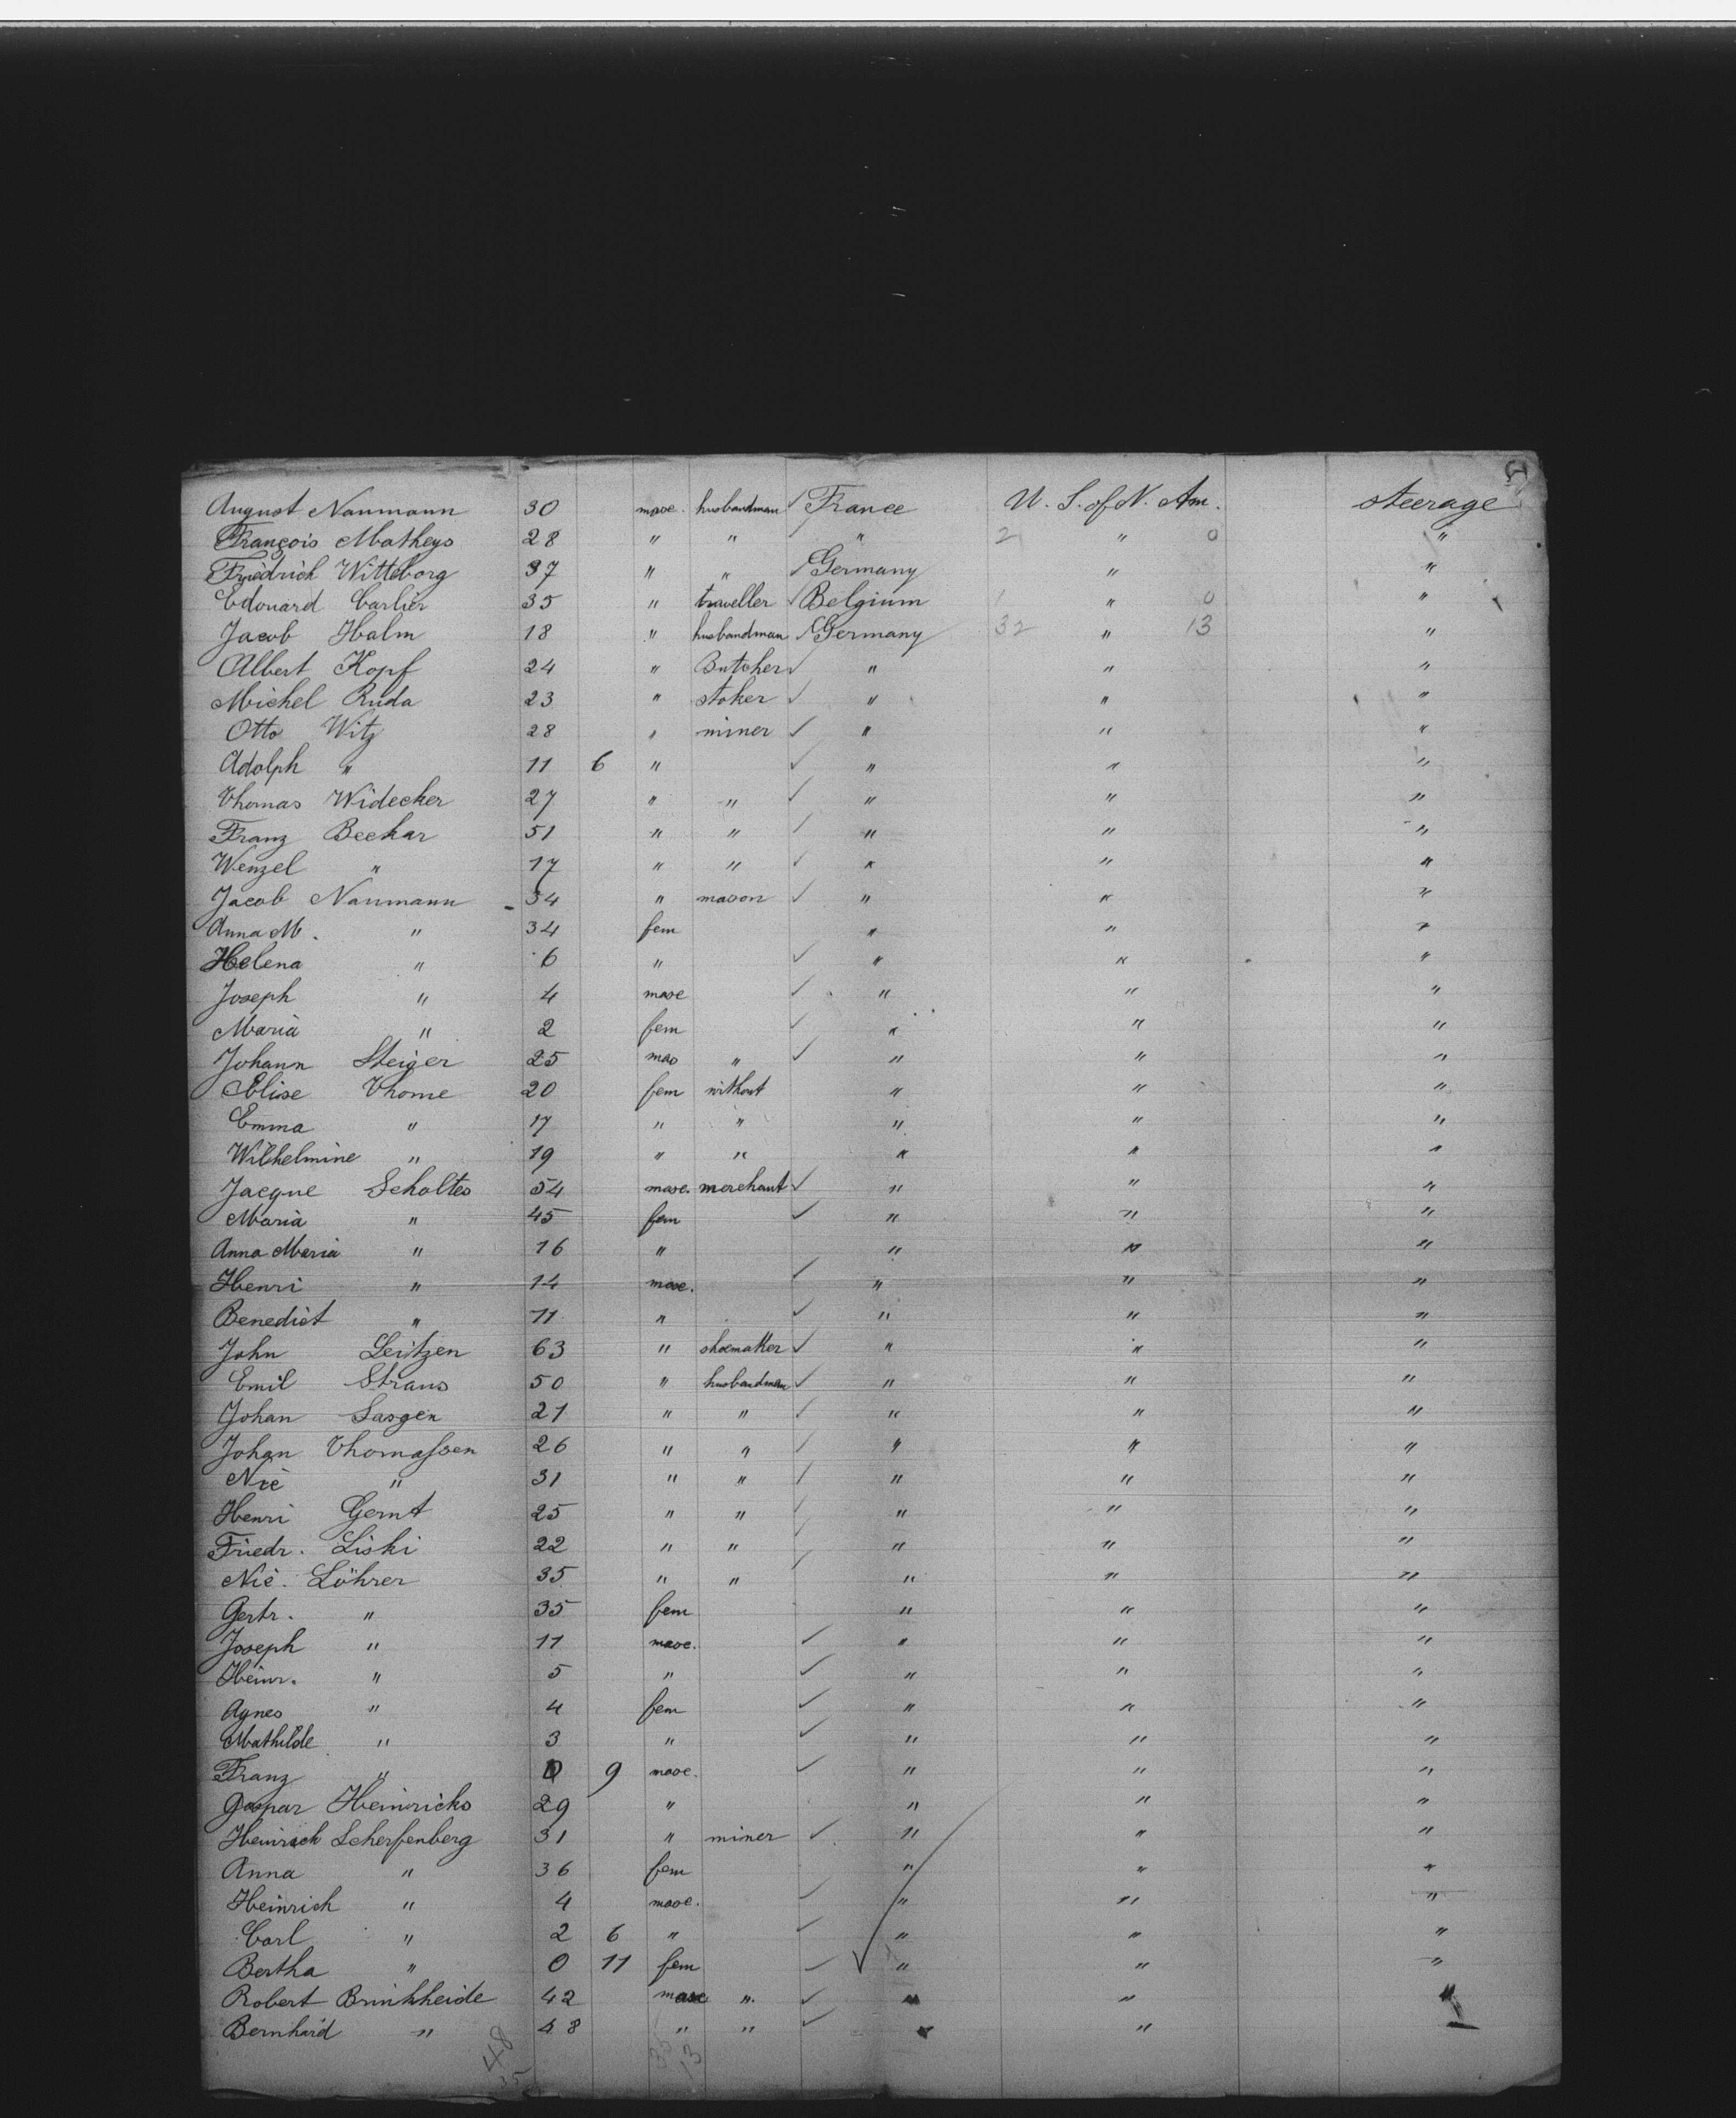 August Naumann 30 masc. husbandman France U. S. of N. Am. steerage
François Matheys 28 " " " 2 " 0 "
Friedrich Witteborg 37 " " Germany " "
Edouard Carlier 35 " traveller Belgium 1 " 0 "
Jacob Halm 18 " husbandman Germany 32 " 13 "
Albert Kopf 24 " Butcher " " "
Michel Ruda 23 " stoker " " "
Otto Witz 28 " miner " " "
Adolph " 11 6 " " " "
Thomas Widecker 27 " " " " "
Franz Beckar 51 " " " " "
Wenzel " 17 " " " " "
Jacob Naumann 34 " mason " " "
Anna M. " 34 fem " " "
Helena " 6 " " " "
Joseph " 4 masc " " "
Maria " 2 fem " " "
Johann Steiger 25 mas " " " "
Elise Thome 20 fem without " " "
Emma " 17 " " " " "
Wilhelmine " 19 " " " " "
Jacque Scholtes 54 masc. merchant " " "
Maria " 45 fem " " "
Anna Maria " 16 " " " "
Henri " 14 masc. " " "
Benedict " 11 " " " "
John Leitzen 63 " shoemaker " " "
Emil Straus 50 " husbandman " " "
Johan Sasgen 21 " " " " "
Johan Thomassen 26 " " " " "
Nic " 31 " " " " "
Henri Gernt 25 " " " " "
Friedr. Liski 22 " " " " "
Nic. Löhrer 35 " " " " "
Gertr. " 35 fem " " "
Joseph " 11 masc. " " "
Heinr. " 5 " " " "
Agnes " 4 fem " " "
Mathilde " 3 " " " "
Franz " 0 9 masc. " " "
Gaspar Heinricks 29 " " " "
Heinrich Scherfenberg 31 " miner " " "
Anna " 36 fem " " "
Heinrich " 4 masc. " " "
Carl " 2 6 " " " "
Bertha " 0 11 fem " " "
Robert Brinkheide 42 masc " " " "
Bernhard " 48 " " " "
48 35 13
35